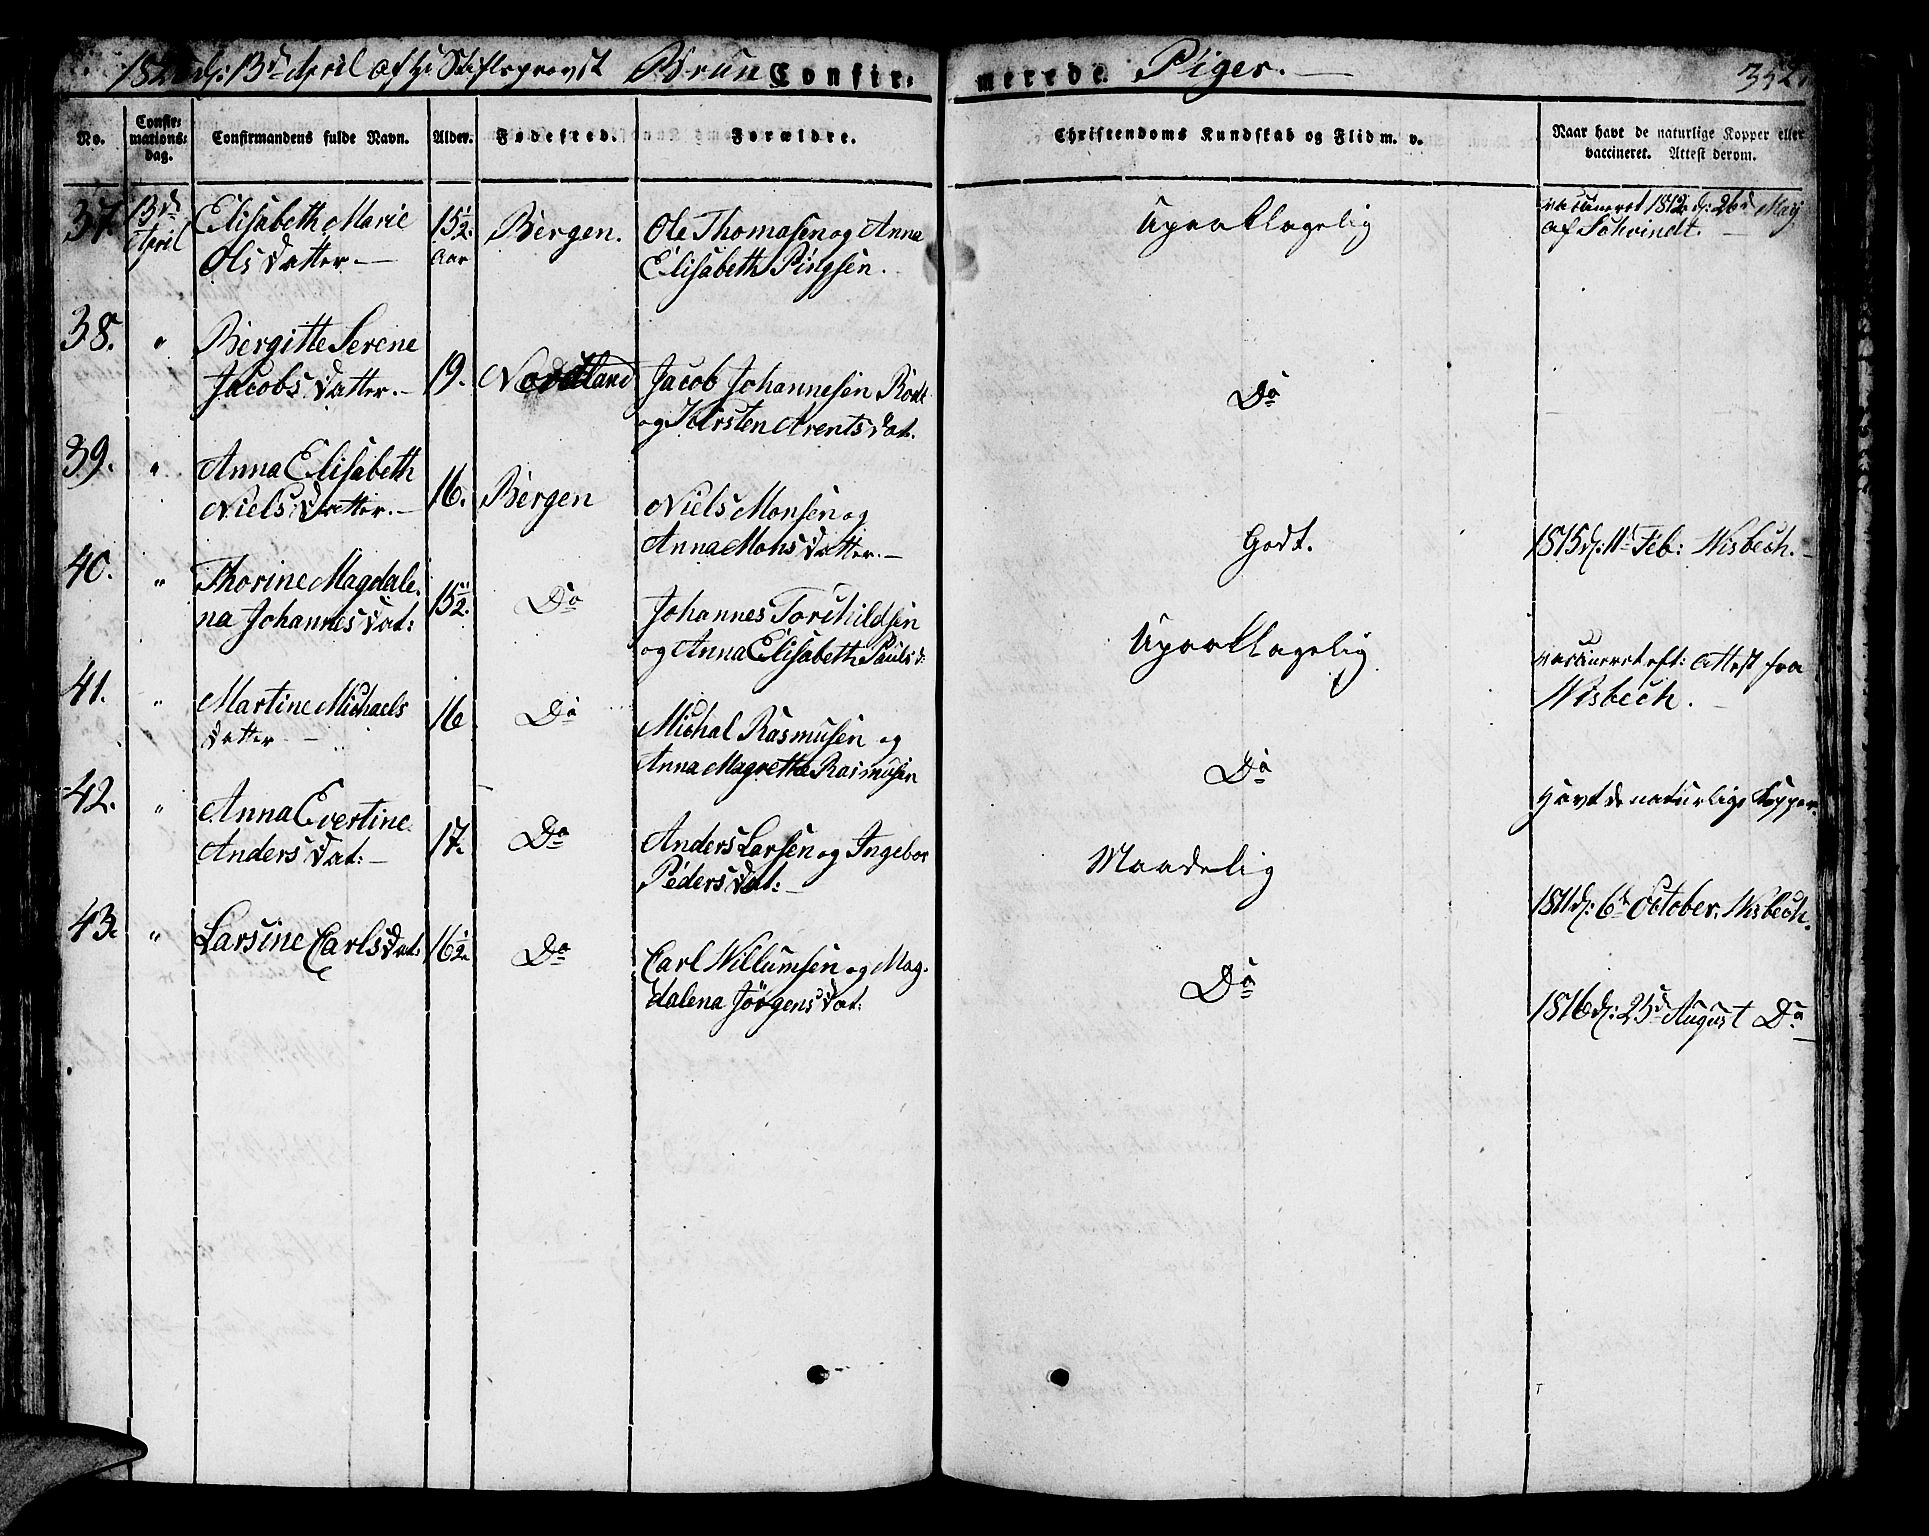 d: 13d April af Hr Stiftsprovst Brun Confirmerede Piger.
No.
Confirmations-dag.
Confirmandens fulde Navn.
Alder.
Fødested.
Forældre.
Christendoms Kundskab og Flid m. v.
Naar havt de naturlige Kopper eller vaccineret. Attest derom.
37. 13d April
Elisabeth Marie
Ols Datter.
15½ Aar
Bergen.
Ole Thomasen og Anna
Elisabeth Pingsen.
Upaaklagelig
vaccineret 1812 d: 26d May
af Schvindt.
38. "
Bergitte Serene
Jacobs Datter.
19.
Nordland
Jacob Johannesen
og Kirsten Arents Dat.
Do
39. "
Anna Elisabeth
Niels Datter.
16.
Bergen
Niels Monsen og
Anna Mons Datter.
Godt.
1815 d: 11t Feb: Wisbech.
40. "
Thorine Magdale-
na Johannes Dat:
15½.
Do
Johannes Torchildsen
og Anna Elisabeth Pauls d:
Upaaklagelig
vaccineret eft: Attest fra
Wisbech.
41. "
Martine Michaels
Datter
16
Do
Michal Rasmusen og
Anna Magrethe Rasmusen
Do
Havt de naturlige Kopper.
42. "
Anna Evertine
Anders Dat:
17.
Do
Anders Larsen og Ingebor
Peders Dat:
Maadelig
1811 d: 6t October. Wisbech.
43. "
Larsine Carls Dat:
16½.
Do
Carl Willumsen og Mag-
dalena Jörgens Dat:
Do
1816 d: 23d August Do